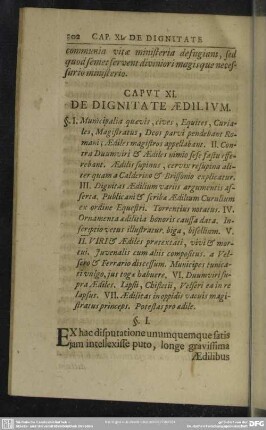 200 CAP. XI. DE DIGNITATE
communia vitæ ministeria defugiant, sed
quod semet servent diviniori magisque neces-
sario ministerio.
CAPVT XI.
DE DIGNITATE ÆDILIVM.
§. I. Municipalia quævis, cives, Equites, Curia-
les, Magistratus, Deos parvi pendebant Ro-
mani; Ædiles magistros appellabant. II. Con-
tra Duumviri & Ædiles nimio sese fastu effe-
rebant. Ædilis supinus, cervix resupina ali-
ter quam a Calderino & Brissonio explicatur.
III. Dignitas Ædilium variis argumentis as-
serta. Publicani & scribæ Ædilium Curulium
ex ordine Equestri. Torrentius notatus. IV.
Ornamenta ædilitia honoris caussa data. In-
scriptio vetus illustratur. biga, bisellium. V.
II. VIRI & Ædiles prætextati, vivi & mor-
tui. Juvenalis cum aliis compositus, a Vel-
sero & Ferrario dissensum. Municipes tunica-
ti vulgo, jus toga habuere. VI. Duumviri su-
pra Ædiles. Lipsii, Chifletii, Velseri ea in re
lapsus. VII. Ædilitas in oppidis vacuis magi-
stratus princeps. Potestas pro ædile.
§. I.
EX hac disputatione unumquemque satis
jam intellexisse puto, longe gravissima
Ædilibus